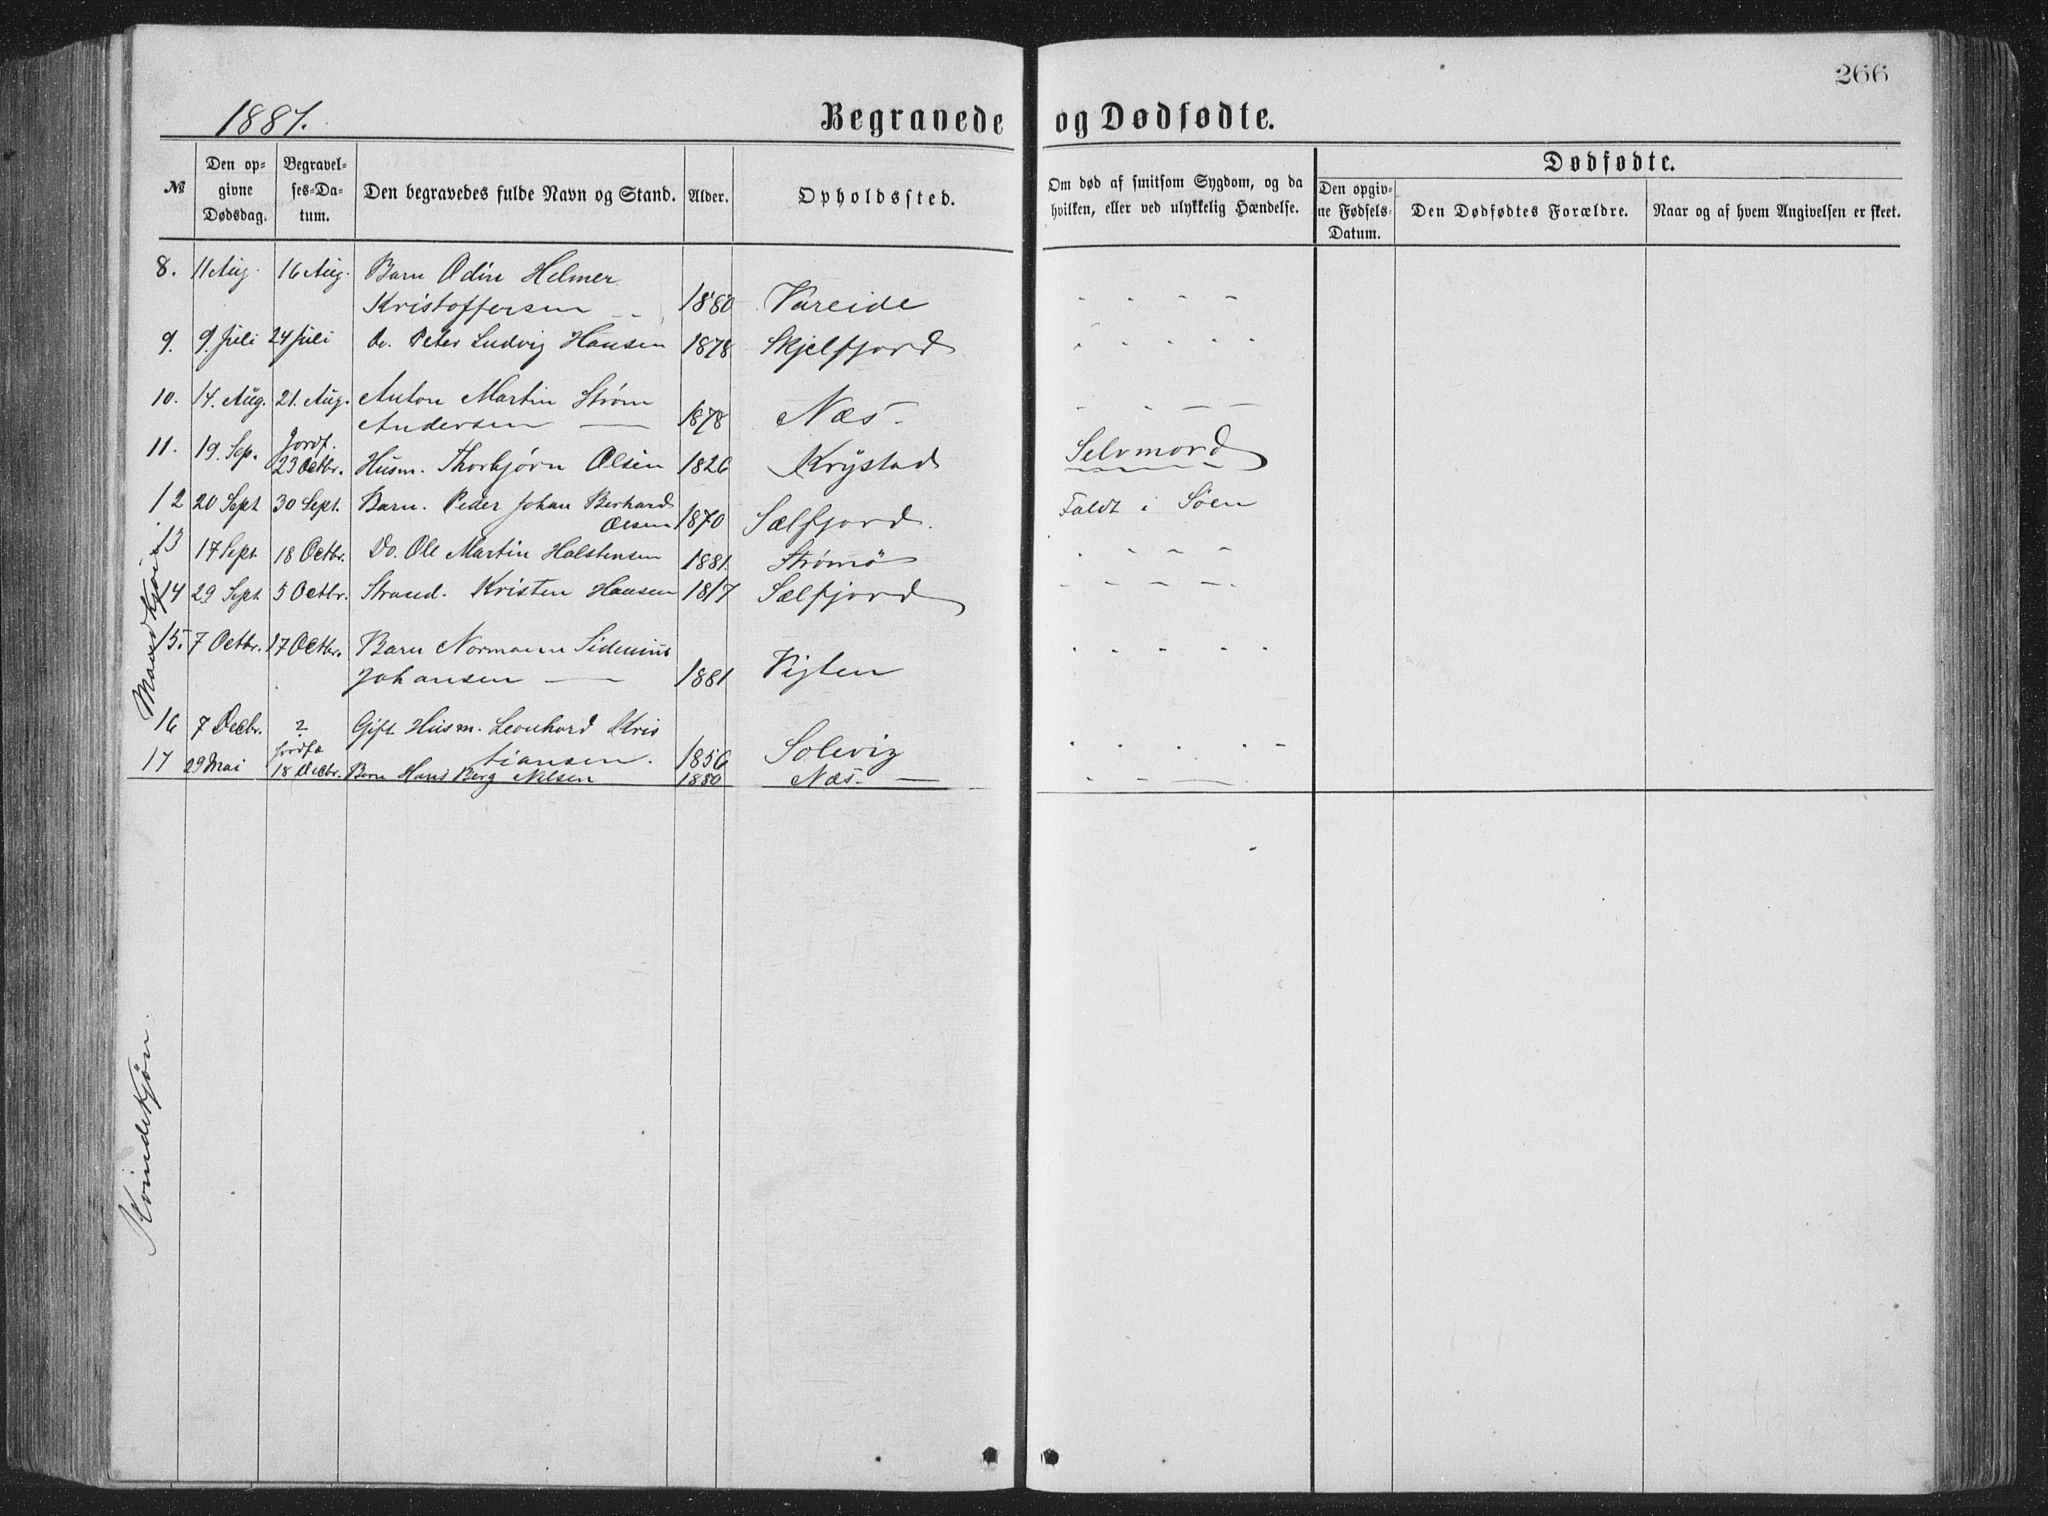 266
1881.
Begravede og Dødfødte.
№
Den op-
givne
Dødsdag.
Begravel-
ses-Da-
tum.
Den begravedes fulde Navn og Stand.
Alder.
Opholdssted.
Om død af smitsom Sygdom, og da
hvilken, eller ved ulykkelig Hændelse.
Dødfødte.
Den opgiv-
ne Fødsels-
Datum.
Den Dødfødtes Forældre.
Naar og af hvem Angivelsen er skeet.
8. 11 Aug. 16 Aug. Barn Odin Helmer
Kristoffersen 1880 Vareide " - - - -
9. 9. Juli 24 Juli Do. Peter Ludvig Hansen 1878 Skjelfjord
10. 14. Aug. 21. Aug. Anton Martin Strøm
Andersen — 1878 Næs. - - - - -
11. 19. Sep. Jordf.
23 Octbr. Husm. Thorbjørn Olsen 1826 Krystad Selvmord
12 20 Sept 30 Sept. Barn. Peder Johan Berhard
Olsen 1870 Sælfjord. Faldt i Søen
13 17 Sept. 18 Octbr. Do. Ole Martin Halstensen 1881. Strømø
14 29 Sept. 5 Octbr. Strand. Kristen Hansen 1817 Sælfjord - - - - -
15. 7 Octbr. 17 Octbr. Barn Normann Sidenius
Johansen — 1881 Vigten
16 7 Decbr. ? Gift Husm. Leonhard Kris
tiansen. 1856 Solevig
17 29 Mai Jordfæ
18 Decbr. Barn Hans Berg Nilsen 1880 Næs —
Mandkjøn
Kvindekjøn.